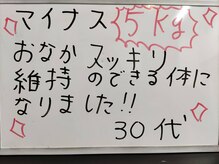 マイナス 5Kg
おなかスッキリ
維持のできる体に
なりました!!
30代